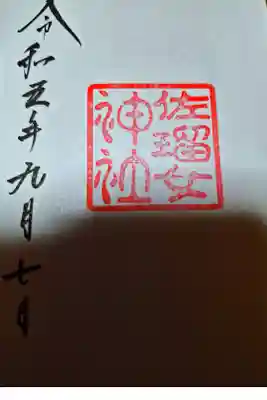 佐瑠女
神社
令和五年九月七日